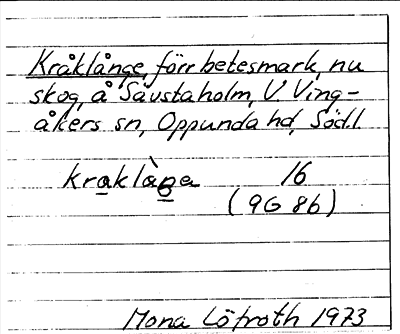 Kråklånge, förr betesmark, nu
skog, å Sävstaholm, V. Ving-
åkers sn, Oppunda hd, Södl.
16
(9G 8b)
Mona Löfroth 1973